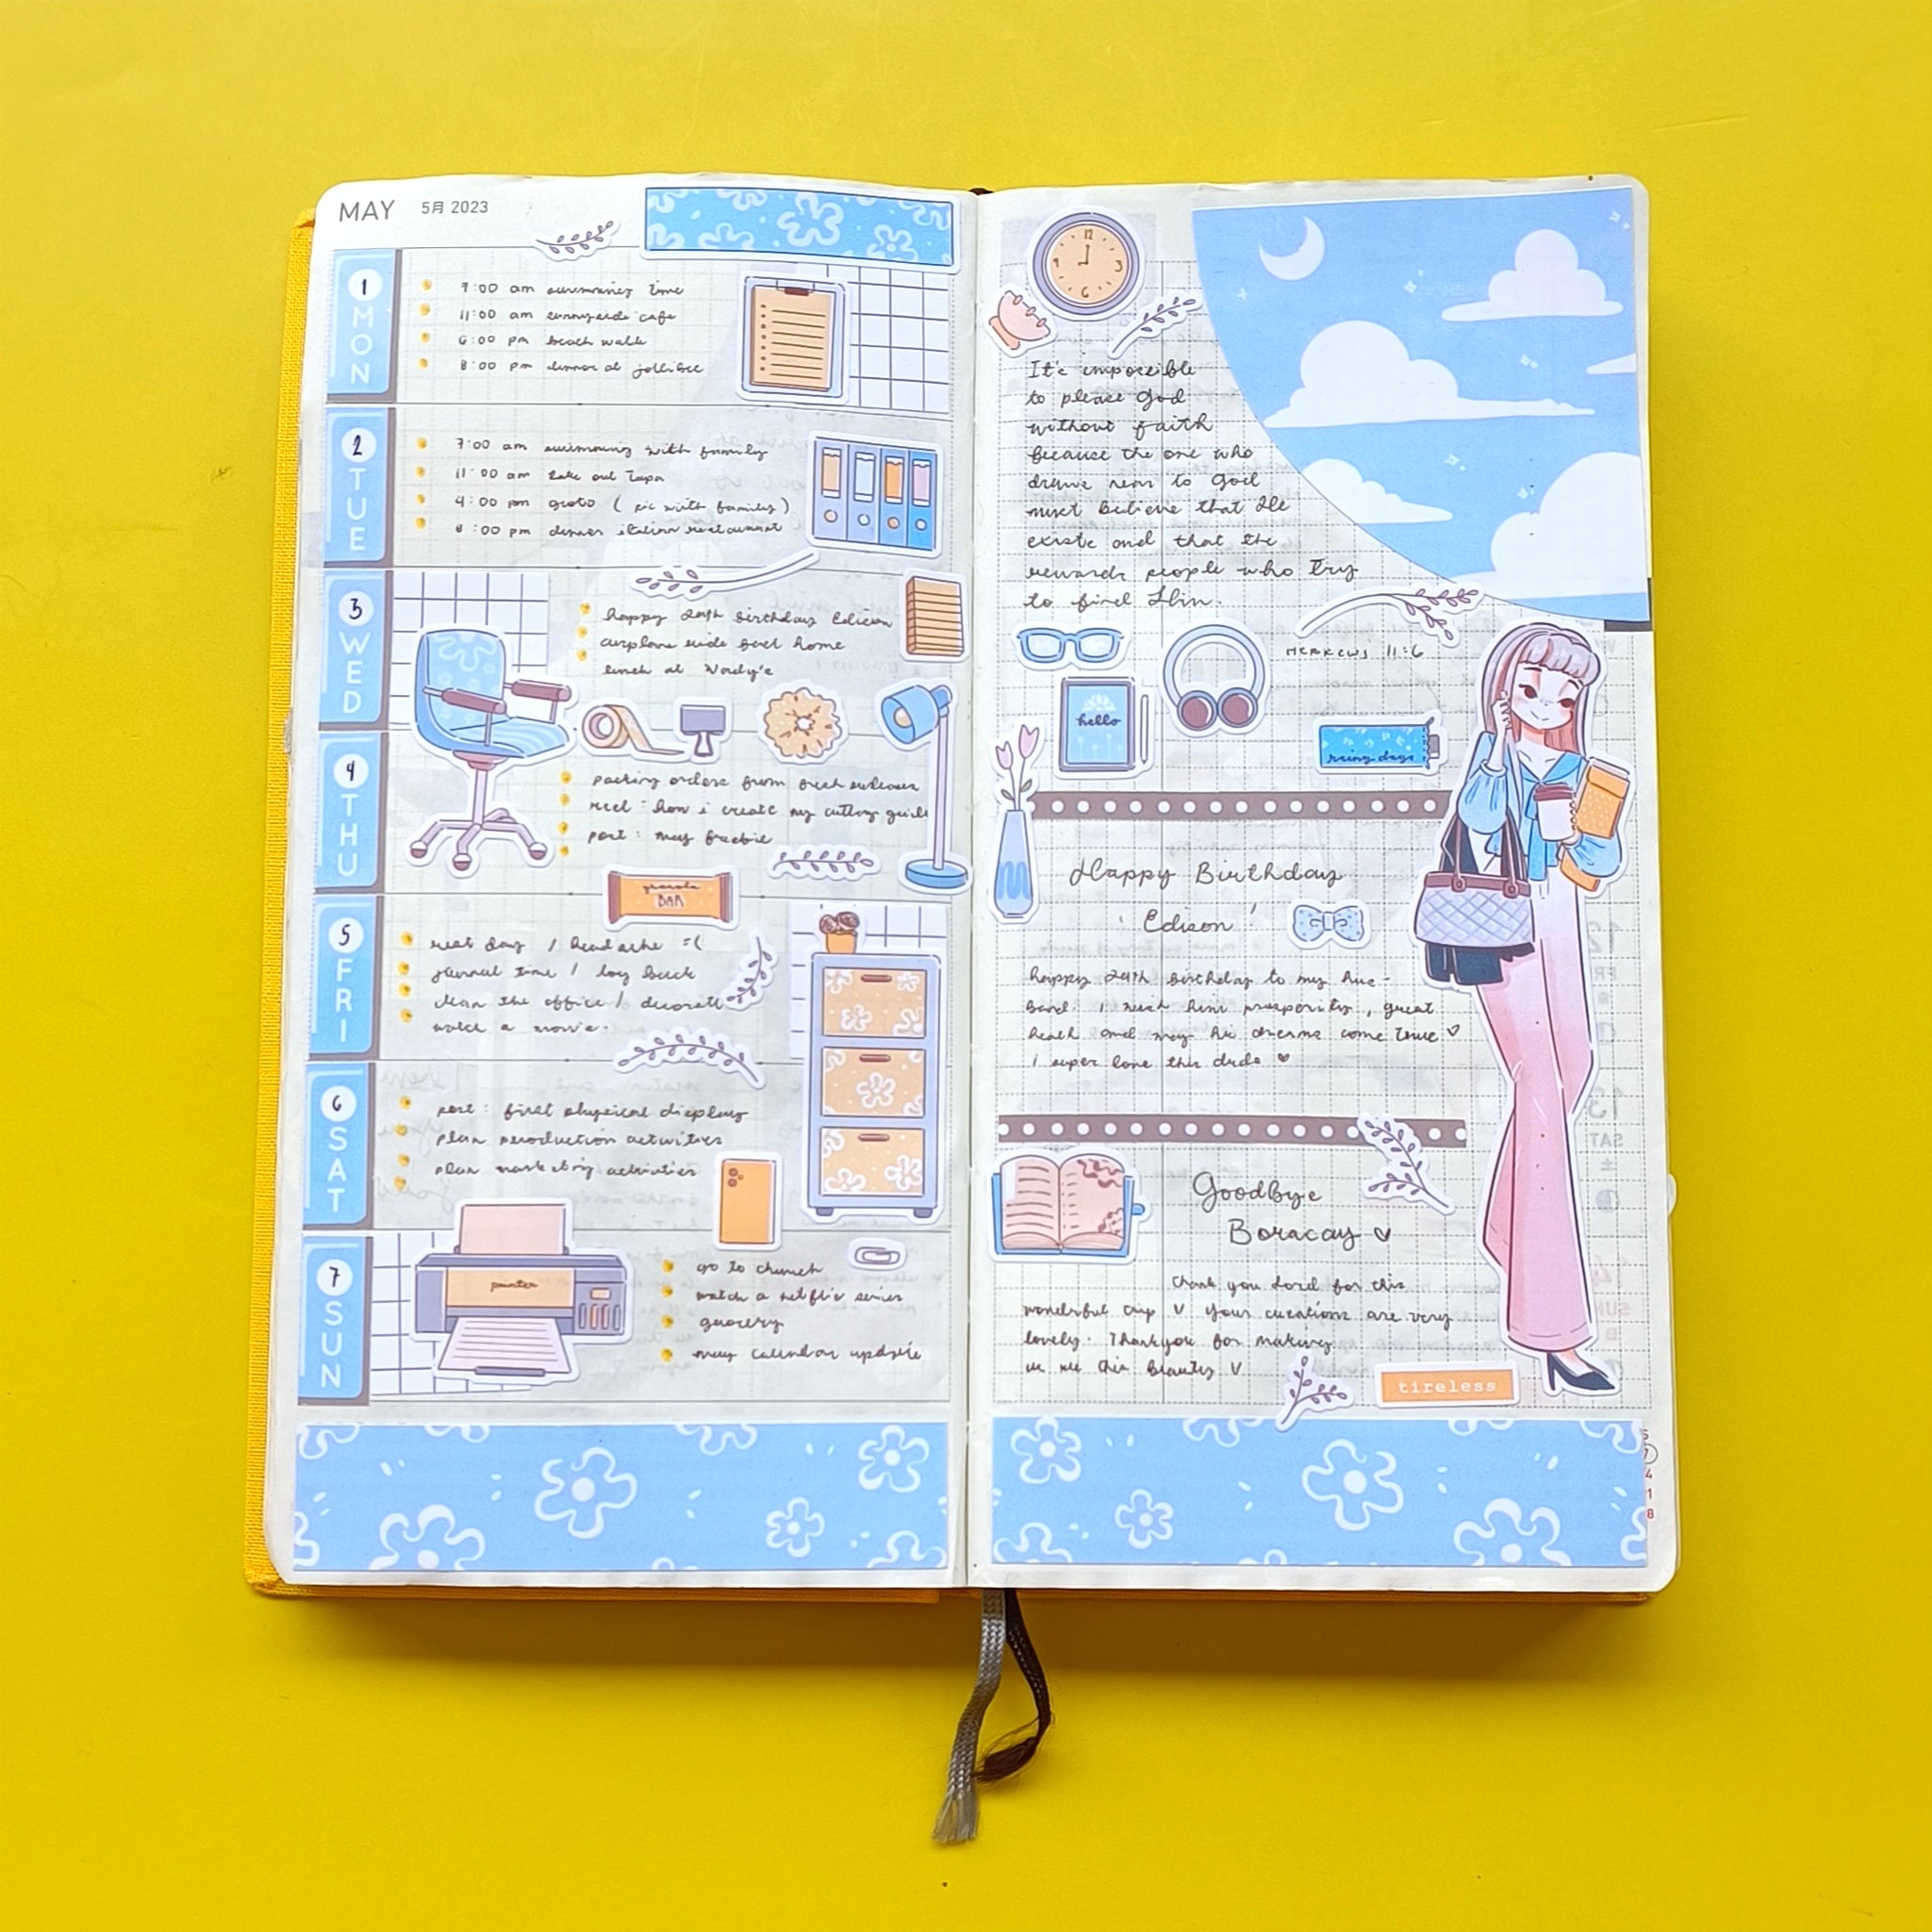 MAY 5月 2023
1 MON
7:00 am swimming time
11:00 am sunnyside cafe
6:00 pm beach walk
8:00 pm dinner at jollibee
2 TUE
7:00 am swimming with family
11:00 am take out Tapa
4:00 pm groto ( pic with family )
8:00 pm dinner italian restaurant
3 WED
happy 29th birthday Edison
airplane ride back home
lunch at Wendy's
4 THU
packing orders from
reel : how i create my cutting guide
post : may freebie
granola
BAR
5 FRI
rest day / headache =(
journal time / log back
clean the office / decorate
watch a movie.
6 SAT
post : first physical display
plan production activities
plan marketing activities
7 SUN
printer
go to church
watch a netflix series
grocery
may calendar update
12
9 3
6
It's impossible
to please God
without faith
because the one who
draws near to God
must believe that He
exists and that the
rewards people who try
to find Him.
HEBREWS 11:6
hello
rainy days
Happy Birthday
Edison !
happy 29th birthday to my hus-
band. I wish him prosperity, great
health and may his dreams come true ♡
I super love this dude ♥
Goodbye
Boracay ♡
Thank you Lord for this
wonderful trip V Your creations are very
lovely. Thankyou for making
us see this beauty V
tireless
12
FRI
13
SAT
14
SUN